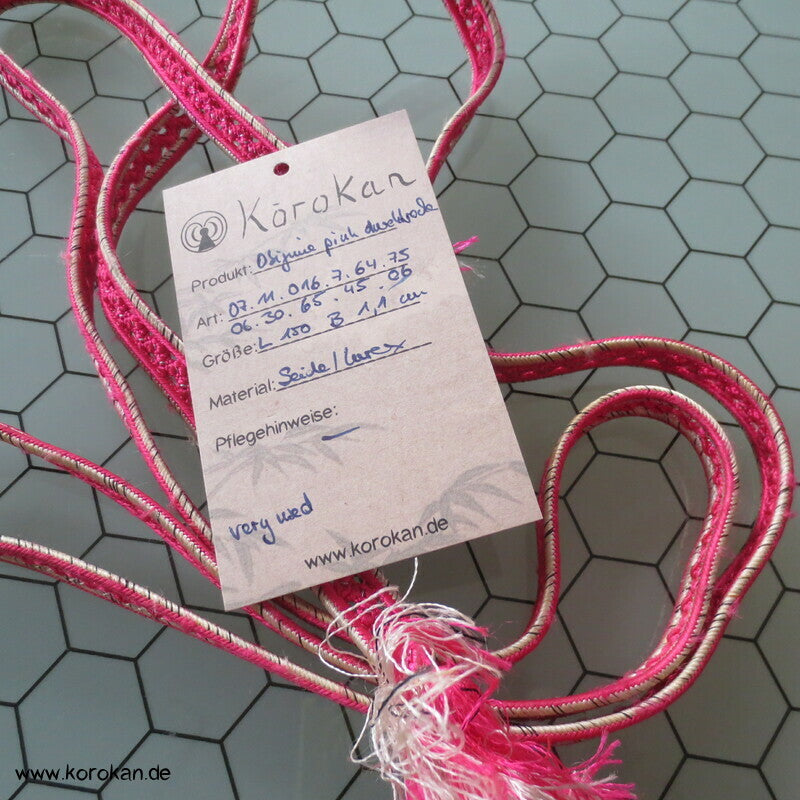 Kōrokan
Produkt: Obijime pink durchbrocke
Art: 07.11.016.7.64.75
06.30.65.45.06
Größe: L 150 B 1,1 cm
Material: Seide/Lurex
Pflegehinweise: –
very used
www.korokan.de
www.korokan.de